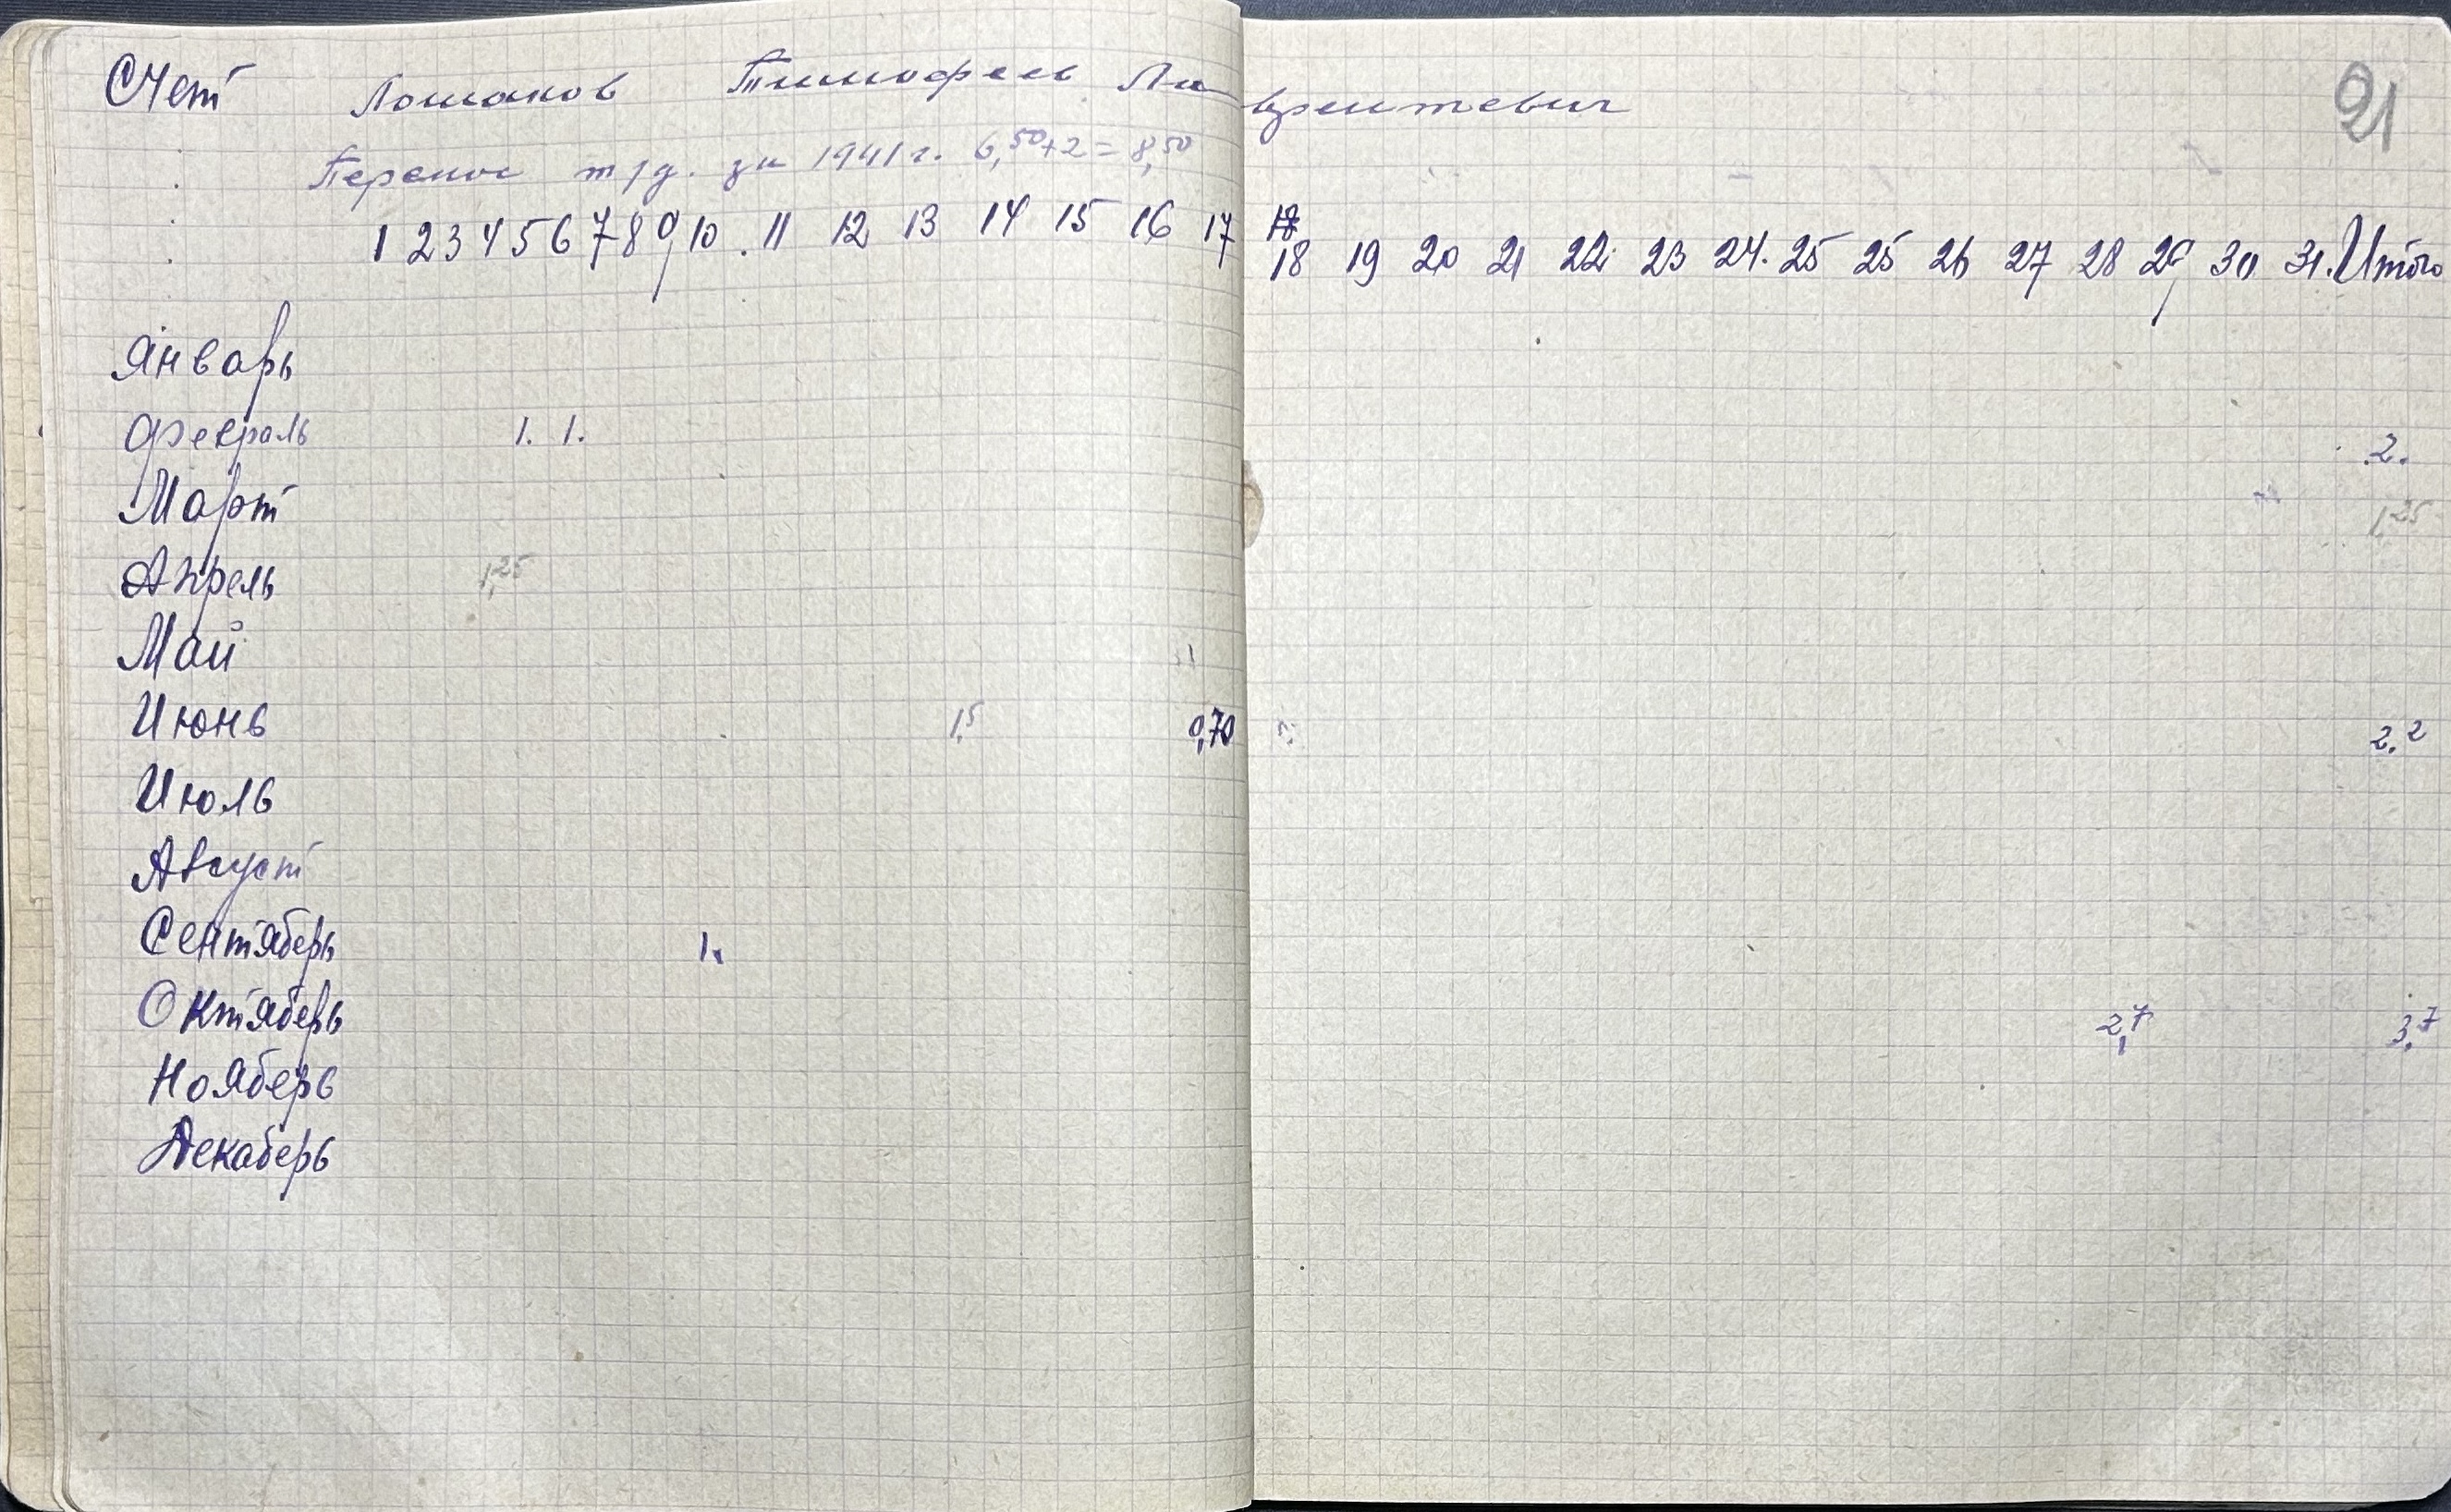 Счет Лошаков Тимофеев Лаврентевич 21
Перенос т/д. за 1941 г. 6,50+2=8,50
1 2 3 4 5 6 7 8 9 10 11 12 13 14 15 16 17 18 19 20 21 22 23 24. 25 25 26 27 28 29 30 31. Итого
Январь
Февраль 1. 1. 2.
Март 1,25
Апрель 1,25
Май 1
Июнь 1,5 0,70 2,2
Июль
Август
Сентяберь 1.
Октяберь 2,7 3,7
Нояберь
Декаберь